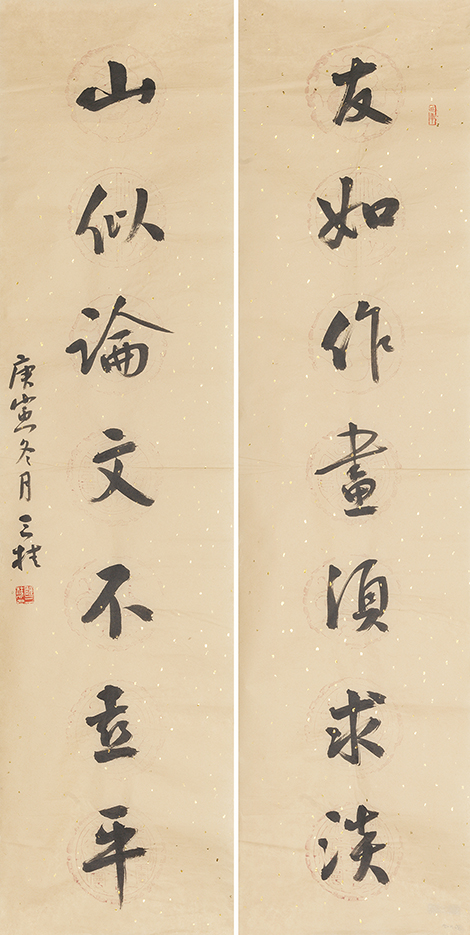 友如作畫須求淡
山似論文不喜平
庚寅冬月